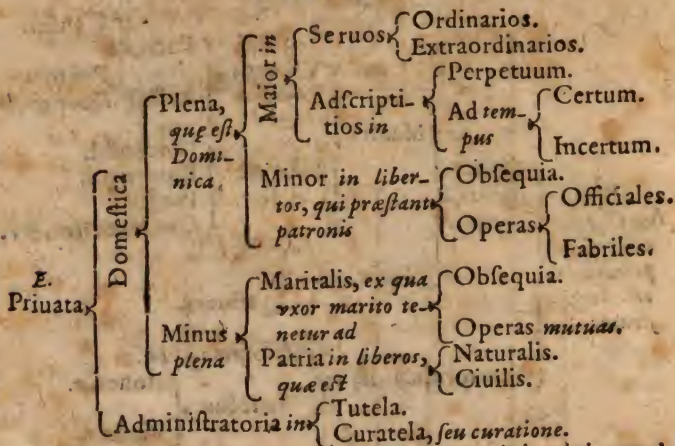 E.
Priuata
Domestica
Plena,
quę est
Domi-
nica.
Maior in
Seruos
Ordinarios.
Extraordinarios.
Adscripti-
tios in
Perpetuum.
Ad tem-
pus
Certum.
Incertum.
Minor in liber-
tos, qui præstant
patronis
Obsequia.
Operas
Officiales.
Fabriles.
Minus
plena
Maritalis, ex qua
vxor marito te-
netur ad
Obsequia.
Operas mutuas.
Patria in liberos,
quæ est
Naturalis.
Ciuilis.
Administratoria in
Tutela.
Curatela, seu curatione.